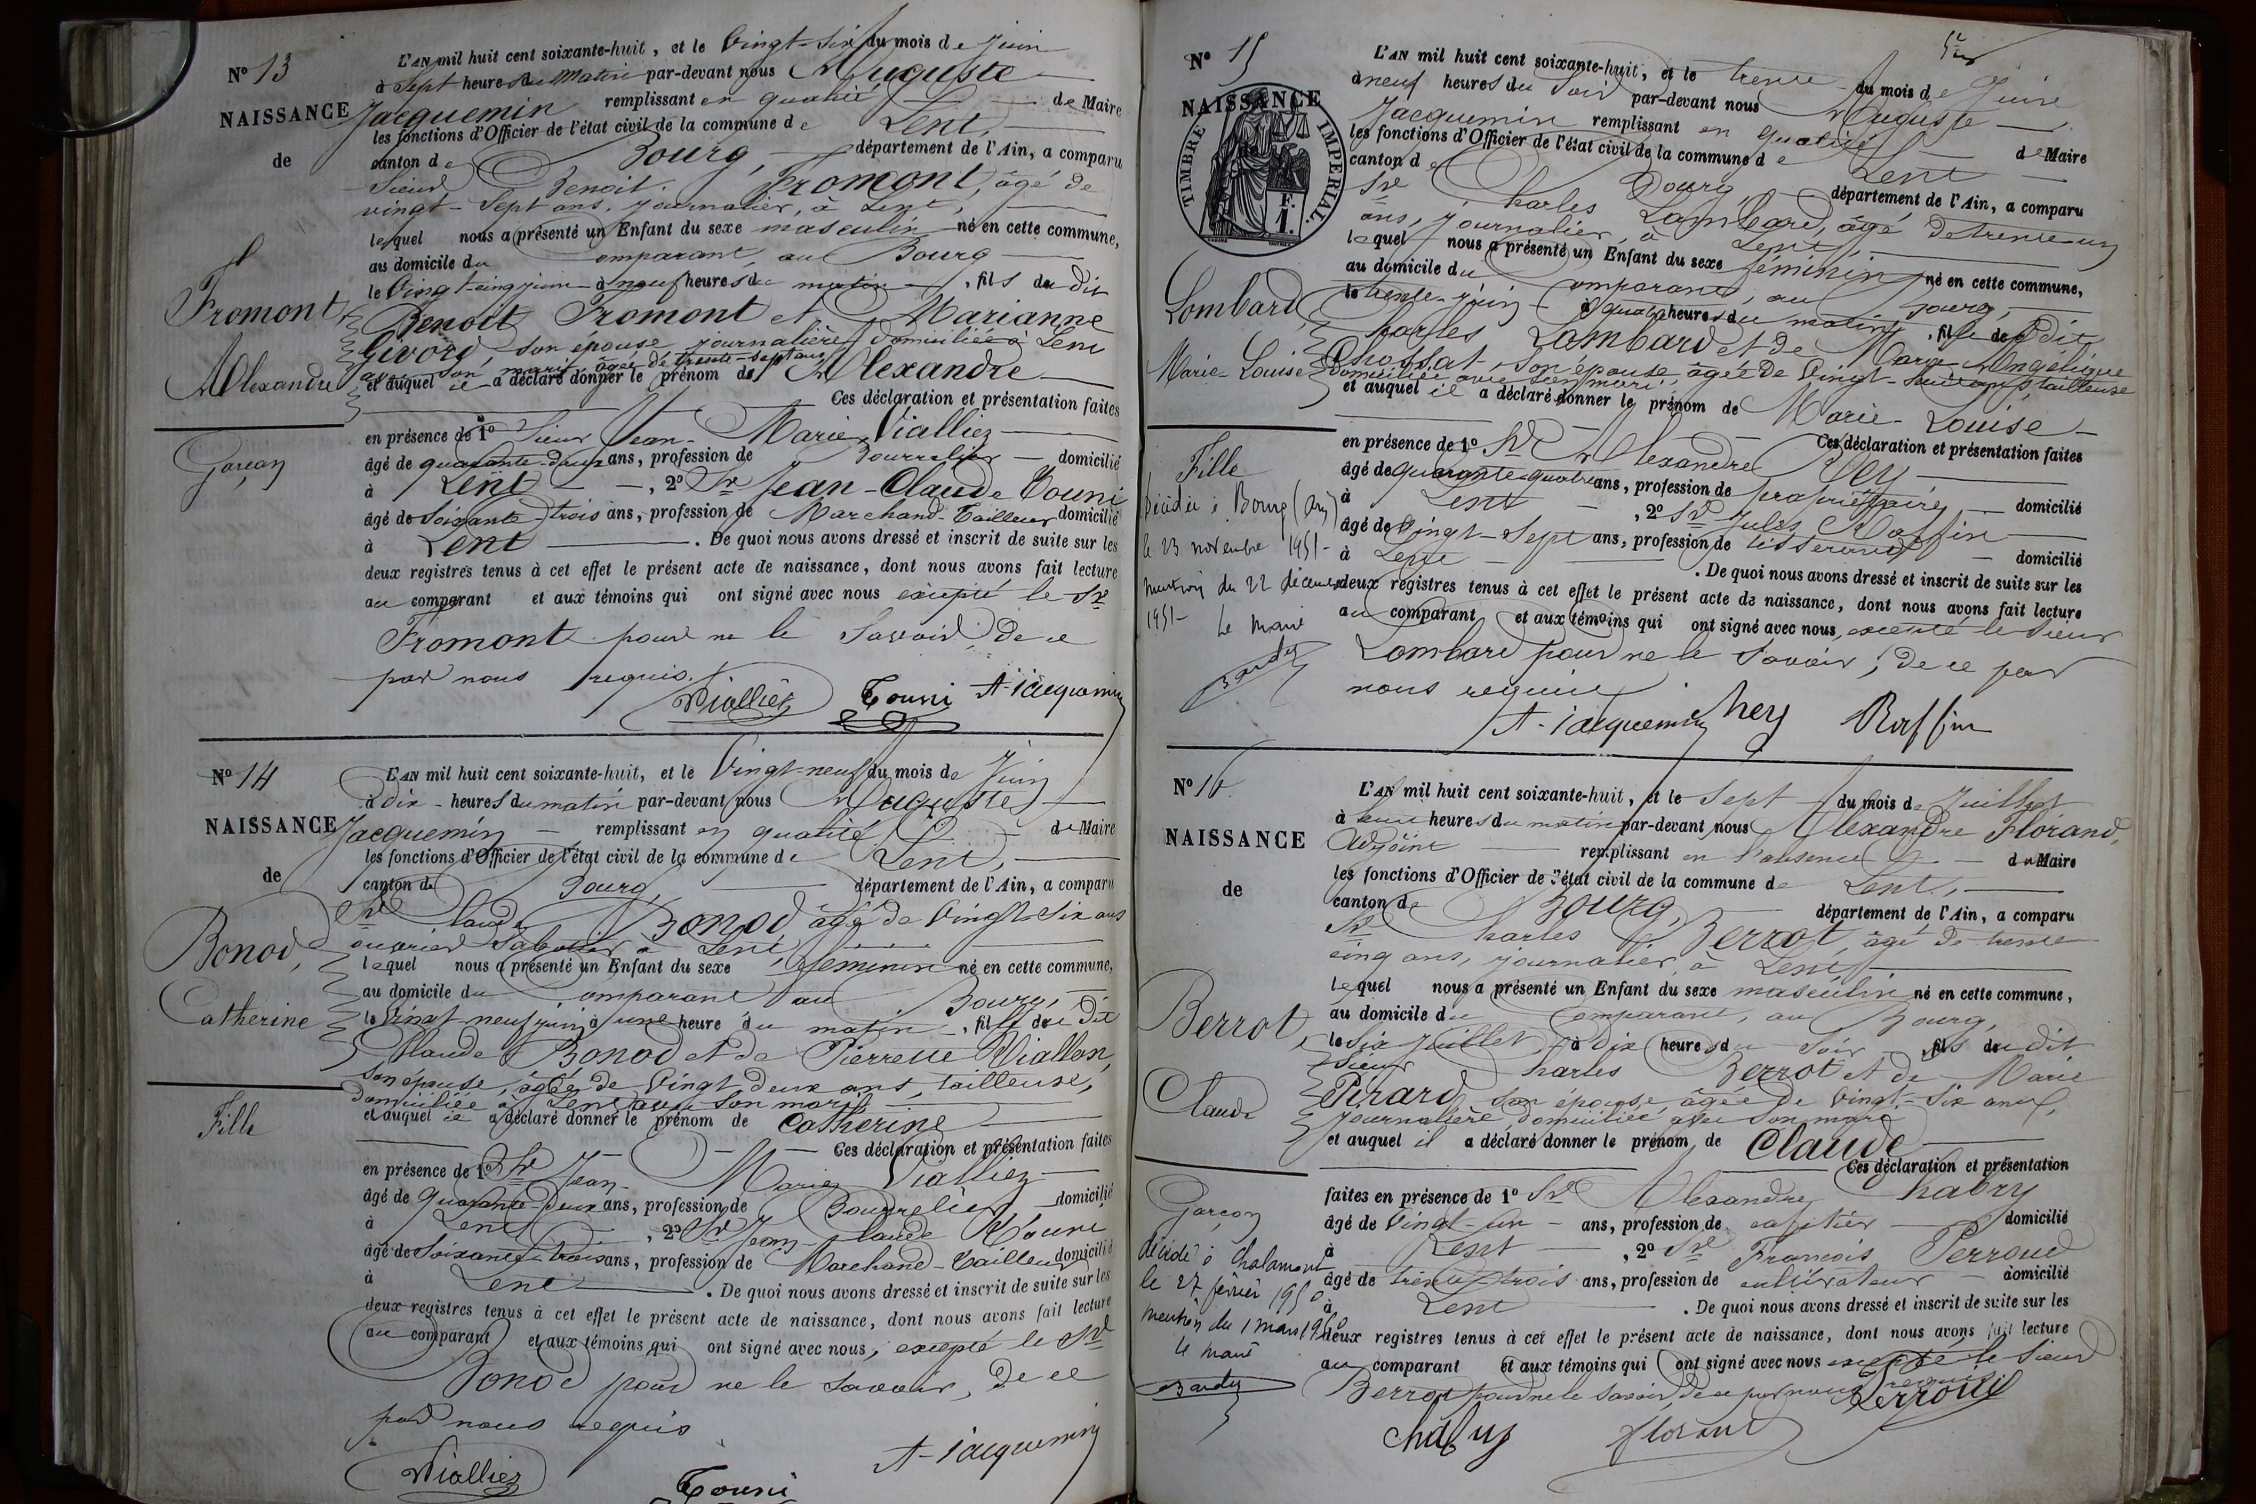 N° 13
NAISSANCE
de
Fromont
Alexandre
Garçon
L'AN mil huit cent soixante-huit, et le Vingt-six du mois de Juin
à Sept heures du Matin par-devant nous Auguste
Jacquemin remplissant en qualité de Maire
les fonctions d'Officier de l'état civil de la commune de Lent,
canton de Bourg, département de l'Ain, a comparu
Sieur Benoit Fromont, âgé de
vingt-sept ans, journalier, à Lent,
lequel nous a présenté un Enfant du sexe masculin né en cette commune,
au domicile du Comparant, au Bourg
le Vingt-cinq juin à neuf heures du matin, fils du dit
Benoit Fromont et Marianne
Givord, son épouse, journalière, domiciliée à Lent
avec son mari, âgée de trente-sept ans
et auquel il a déclaré donner le prénom de Alexandre
Ces déclaration et présentation faites
en présence de 1° Sieur Jean-Marie Vialliez
âgé de quarante-deux ans, profession de Bourrelier domicilié
à Lent, 2° Sr Jean-Claude Touni
âgé de Soixante trois ans, profession de Marchand-Tailleur domicilié
à Lent. De quoi nous avons dressé et inscrit de suite sur les
deux registres tenus à cet effet le présent acte de naissance, dont nous avons fait lecture
au comparant et aux témoins qui ont signé avec nous excepté le Sr
Fromont pour ne le Savoir, de ce
par nous requis.
Vialliez Touni A-Jacquemin
N° 14
NAISSANCE
de
Bonod,
Catherine
Fille
L'AN mil huit cent soixante-huit, et le Vingt-neuf du mois de Juin
à dix heures du matin par-devant nous Auguste
Jacquemin remplissant en qualité de Maire
les fonctions d'Officier de l'état civil de la commune de Lent,
canton de Bourg, département de l'Ain, a comparu
Sr Claude Bonod âgé de Vingt-six ans
ouvrier Sabotier à Lent,
lequel nous a présenté un Enfant du sexe féminin né en cette commune,
au domicile du Comparant au Bourg,
le Vingt-neuf juin à une heure du matin, fille du dit
Claude Bonod et de Pierrette Viallon,
son épouse, âgée de Vingt deux ans, tailleuse,
domiciliée à Lent avec son mari
et auquel il a déclaré donner le prénom de Catherine
Ces déclaration et présentation faites
en présence de 1° Sr Jean-Marie Vialliez
âgé de quarante-deux ans, profession de Bourrelier domicilié
à Lent, 2° Sr Jean-Claude Touni
âgé de Soixante-trois ans, profession de Marchand-Tailleur domicilié
à Lent. De quoi nous avons dressé et inscrit de suite sur les
deux registres tenus à cet effet le présent acte de naissance, dont nous avons fait lecture
au comparant et aux témoins qui ont signé avec nous, excepté le Sr
Bonod pour ne le savoir, de ce
par nous requis
Vialliez Touni A-Jacquemin
N° 15
NAISSANCE
TIMBRE IMPERIAL
1 F.
Lombard,
Marie-Louise
Fille
Décédée à Bourg (Ain)
le 23 novembre 1951-
mention du 22 décembre
1951-
Le Maire
L'AN mil huit cent soixante-huit, et le trente du mois de Juin
à neuf heures du Soir par-devant nous Auguste
Jacquemin remplissant en qualité de Maire
les fonctions d'Officier de l'état civil de la commune de Lent
canton de Bourg, département de l'Ain, a comparu
Sr Charles Lombard, âgé de trente-un
ans, journalier, à Lent,
lequel nous a présenté un Enfant du sexe féminin né en cette commune,
au domicile du Comparant, au Bourg,
le trente juin à quatre heures du matin, fille du dit
Charles Lombard et de Marie Angélique
Chossat, son épouse, âgée de Vingt-huit ans, tailleuse
domiciliée avec son mari
et auquel il a déclaré donner le prénom de Marie-Louise
Ces déclaration et présentation faites
en présence de 1° Sr Alexandre Rey
âgé de quarante-quatre ans, profession de propriétaire domicilié
à Lent, 2° Sr Jules Raffin
âgé de Vingt-Sept ans, profession de tisserand domicilié
à Lent. De quoi nous avons dressé et inscrit de suite sur les
deux registres tenus à cet effet le présent acte de naissance, dont nous avons fait lecture
au comparant et aux témoins qui ont signé avec nous, excepté le Sieur
Lombard pour ne le Savoir, de ce par
nous requis
A-Jacquemin Rey Raffin
N° 16
NAISSANCE
de
Berrot,
Claude
Garçon
décédé à Chalamont
le 27 février 1950
mention du 1 mars 1950
le maire
L'AN mil huit cent soixante-huit, et le Sept du mois de Juillet
à huit heures du matin par-devant nous Alexandre Florand,
Adjoint remplissant en l'absence du Maire
les fonctions d'Officier de l'état civil de la commune de Lent,
canton de Bourg, département de l'Ain, a comparu
Sr Charles Berrot, âgé de trente
cinq ans, journalier, à Lent,
lequel nous a présenté un Enfant du sexe masculin né en cette commune,
au domicile du Comparant, au Bourg,
le six Juillet, à dix heures du Soir fils du dit
Sieur Charles Berrot et de Marie
Pirard, son épouse, âgée de Vingt-Six ans,
journalière, domiciliée avec son mari
et auquel il a déclaré donner le prénom de Claude
Ces déclaration et présentation
faites en présence de 1° Sr Alexandre Chabry
âgé de Vingt-un ans, profession de cafetier domicilié
à Lent, 2° Sr François Perroud
âgé de trente-trois ans, profession de cultivateur domicilié
à Lent. De quoi nous avons dressé et inscrit de suite sur les
deux registres tenus à cet effet le présent acte de naissance, dont nous avons fait lecture
au comparant et aux témoins qui ont signé avec nous excepté le Sieur
Berrot pour ne le Savoir, de ce par nous requis
Chabry Florand Perroud